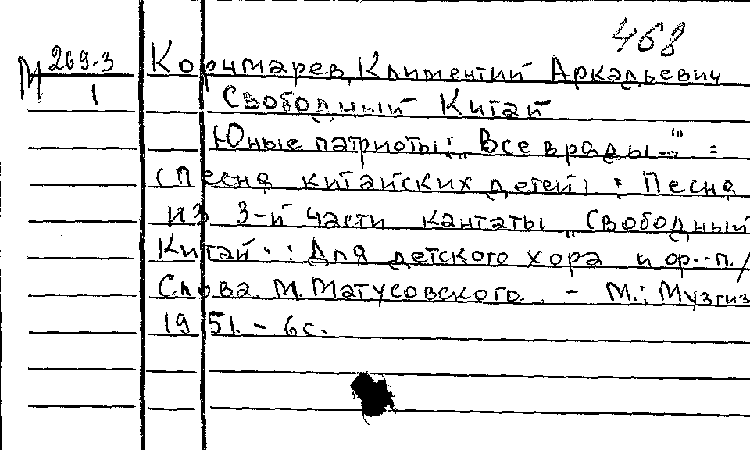 468
М 269-3
1
Корчмарев, Климентий Аркадьевич
Свободный Китай
Юные патриоты: „Все врады..." :
(Песня китайских детей) : Песня
из 3-й части кантаты „Свободный
Китай" : Для детского хора и ф.-п. /
Слова М. Матусовского. - М.: Музгиз
1951. - 6с.